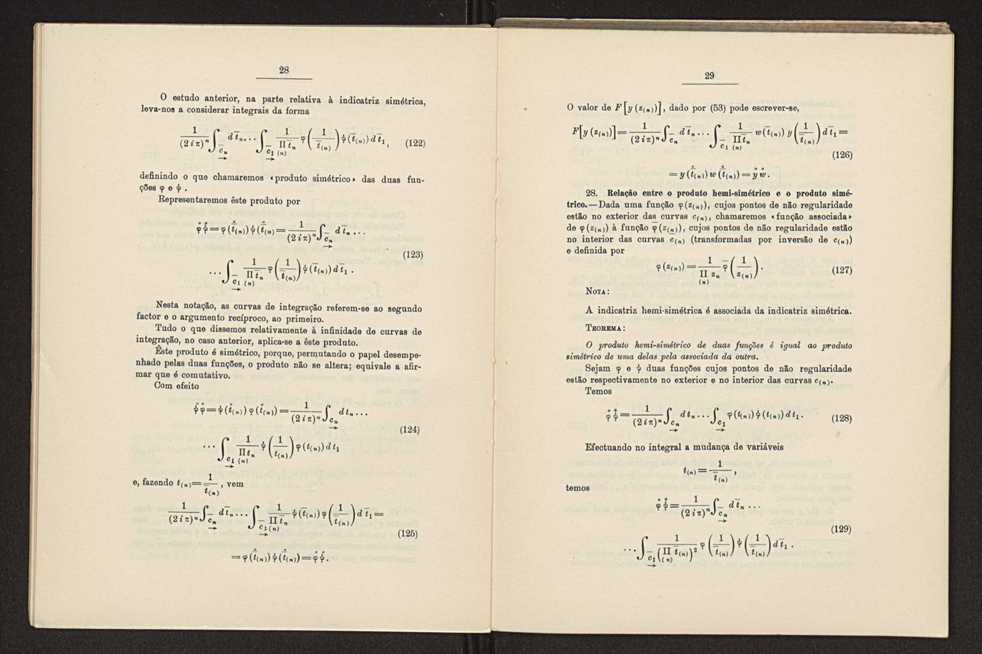 28
O estudo anterior, na parte relativa à indicatriz simétrica,
leva-nos a considerar integrais da forma
1/(2iπ)ⁿ ∫_c̄ₙ d t̄ₙ... ∫_c̄₁ 1/(Π t̄ₙ)₍ₙ₎ φ(1/t̄₍ₙ₎) ψ(t̄₍ₙ₎) d t̄₁, (122)
definindo o que chamaremos «produto simétrico» das duas fun-
ções φ e ψ.
Representaremos êste produto por
φ̂ ψ̂ = φ(t̂₍ₙ₎) ψ(t̂₍ₙ₎) = 1/(2iπ)ⁿ ∫_c̄ₙ d t̄ₙ ...
(123)
... ∫_c̄₁ 1/(Π t̄ₙ)₍ₙ₎ φ(1/t̄₍ₙ₎) ψ(t̄₍ₙ₎) d t̄₁ .
Nesta notação, as curvas de integração referem-se ao segundo
factor e o argumento recíproco, ao primeiro.
Tudo o que dissemos relativamente à infinidade de curvas de
integração, no caso anterior, aplica-se a êste produto.
Êste produto é simétrico, porque, permutando o papel desempe-
nhado pelas duas funções, o produto não se altera; equivale a afir-
mar que é comutativo.
Com efeito
ψ̂ φ̂ = ψ(t̂₍ₙ₎) φ(t̂₍ₙ₎) = 1/(2iπ)ⁿ ∫_cₙ d tₙ ...
(124)
... ∫_c₁ 1/(Π tₙ)₍ₙ₎ ψ(1/t₍ₙ₎) φ(t₍ₙ₎) d t₁
e, fazendo t₍ₙ₎ = 1/t̄₍ₙ₎ , vem
1/(2iπ)ⁿ ∫_c̄ₙ d t̄ₙ ... ∫_c̄₁ 1/(Π t̄ₙ)₍ₙ₎ ψ(t̄₍ₙ₎) φ(1/t̄₍ₙ₎) d t̄₁ =
(125)
= φ(t̂₍ₙ₎) ψ(t̂₍ₙ₎) = φ̂ ψ̂.
29
O valor de F[y(z₍ₙ₎)], dado por (53) pode escrever-se,
F[y(z₍ₙ₎)] = 1/(2iπ)ⁿ ∫_c̄ₙ d t̄ₙ ... ∫_c̄₁ 1/(Π t̄ₙ)₍ₙ₎ w(t̄₍ₙ₎) y(1/t̄₍ₙ₎) d t̄₁ =
(126)
= y(t̂₍ₙ₎) w(t̂₍ₙ₎) = ŷ ŵ.
28. Relação entre o produto hemi-simétrico e o produto simé-
trico.—Dada uma função φ(z₍ₙ₎), cujos pontos de não regularidade
estão no exterior das curvas c₍ₙ₎, chamaremos «função associada»
de φ(z₍ₙ₎) à função φ̄(z₍ₙ₎), cujos pontos de não regularidade estão
no interior das curvas c₍ₙ₎ (transformadas por inversão de c₍ₙ₎)
e definida por
φ(z₍ₙ₎) = 1/(Π zₙ)₍ₙ₎ φ̄(1/z₍ₙ₎). (127)
NOTA:
A indicatriz hemi-simétrica é associada da indicatriz simétrica.
TEOREMA:
O produto hemi-simétrico de duas funções é igual ao produto
simétrico de uma delas pela associada da outra.
Sejam φ e ψ duas funções cujos pontos de não regularidade
estão respectivamente no exterior e no interior das curvas c₍ₙ₎.
Temos
φ̊ ψ̊ = 1/(2iπ)ⁿ ∫_cₙ d tₙ ... ∫_c₁ φ(t₍ₙ₎) ψ(t₍ₙ₎) d t₁. (128)
Efectuando no integral a mudança de variáveis
t₍ₙ₎ = 1/t̄₍ₙ₎ ,
temos
φ̊ ψ̊ = 1/(2iπ)ⁿ ∫_c̄ₙ d t̄ₙ ...
(129)
... ∫_c̄₁ 1/(Π₍ₙ₎ t̄₍ₙ₎)² φ(1/t̄₍ₙ₎) ψ(1/t̄₍ₙ₎) d t̄₁ .